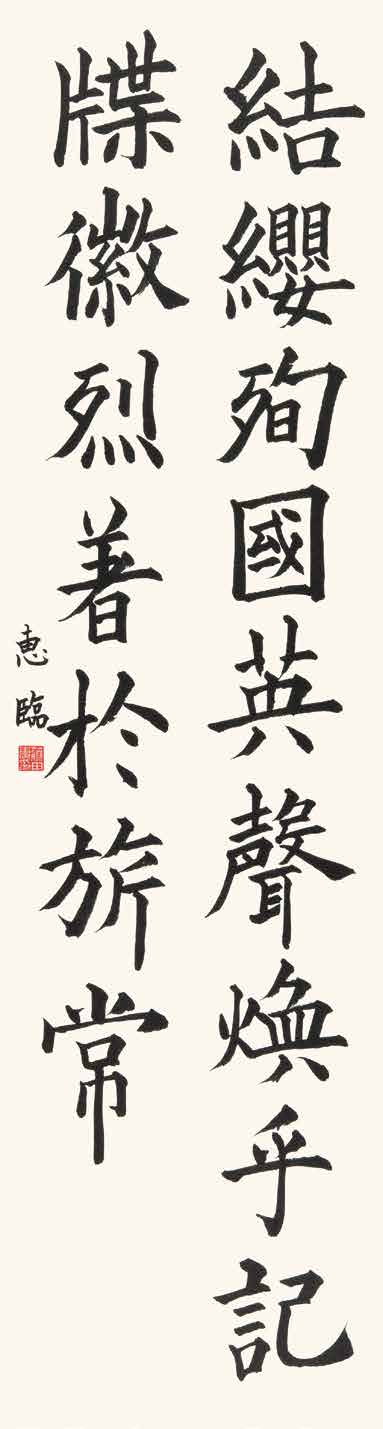 結纓殉國英聲煥乎記
牒徽烈著於旂常
惠臨